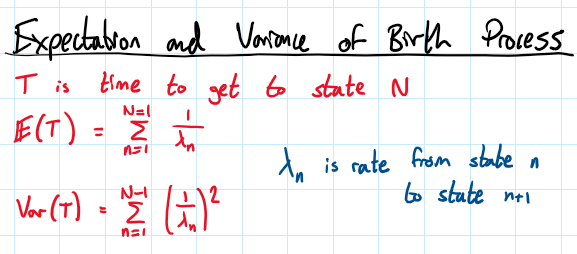 Expectation and Variance of Birth Process
T is time to get to state N
E(T) = N=1 ∑ n=1 1/λn
λn is rate from state n
to state n+1
Var(T) = N-1 ∑ n=1 (1/λn)²